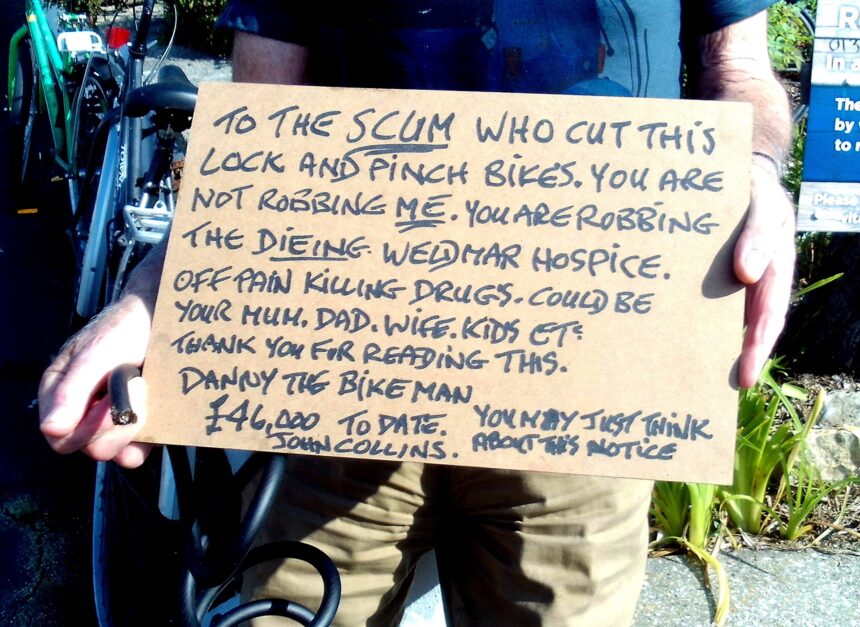 TO THE SCUM WHO CUT THIS
LOCK AND PINCH BIKES. YOU ARE
NOT ROBBING ME. YOU ARE ROBBING
THE DIEING WELDMAR HOSPICE.
OFF PAIN KILLING DRUGS. COULD BE
YOUR MUM. DAD. WIFE. KIDS ET:
THANK YOU FOR READING THIS.
DANNY THE BIKE MAN
£46,000 TO DATE. YOU MAY JUST THINK
JOHN COLLINS. ABOUT THIS NOTICE
R
013
In a
The
by
to r
Please